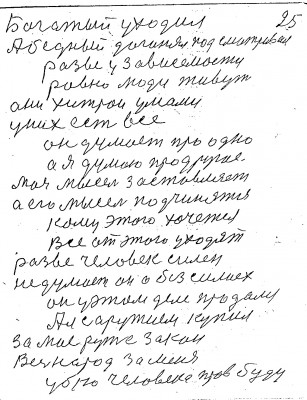 Богатый уходил 25
А бедный догонял подсматривал
разве у зависемости
равно люди живут
они хитрои умами
уних ест все
он думает про одно
а я думаю продругое
моя мысел заставляет
а его мысел подчинятся
кому этого хочется
все от этого уходят
разве человек силен
недумает он о безсилиях
он у этом деле продали
А купил
за закон
Весь народ за меня
убю человека прав буду